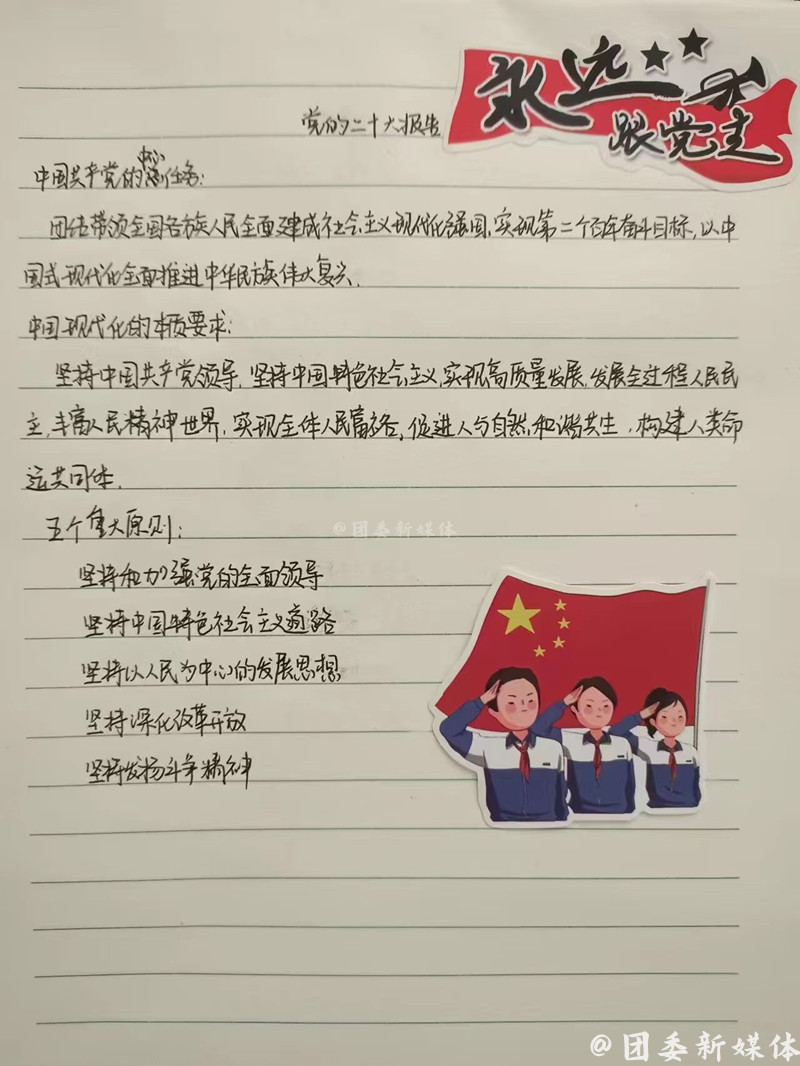 永远
跟党走
党的二十大报告
中心
中国共产党的任务:
团结带领全国各族人民全面建成社会主义现代化强国,实现第二个百年奋斗目标,以中
国式现代化全面推进中华民族伟大复兴.
中国现代化的本质要求:
坚持中国共产党领导,坚持中国特色社会主义,实现高质量发展,发展全过程人民民
主,丰富人民精神世界,实现全体人民富裕,促进人与自然和谐共生,构建人类命
运共同体.
五个重大原则:
@团委新媒体
坚持和加强党的全面领导
坚持中国特色社会主义道路
坚持以人民为中心的发展思想
坚持深化改革开放
坚持发扬斗争精神
@团委新媒体